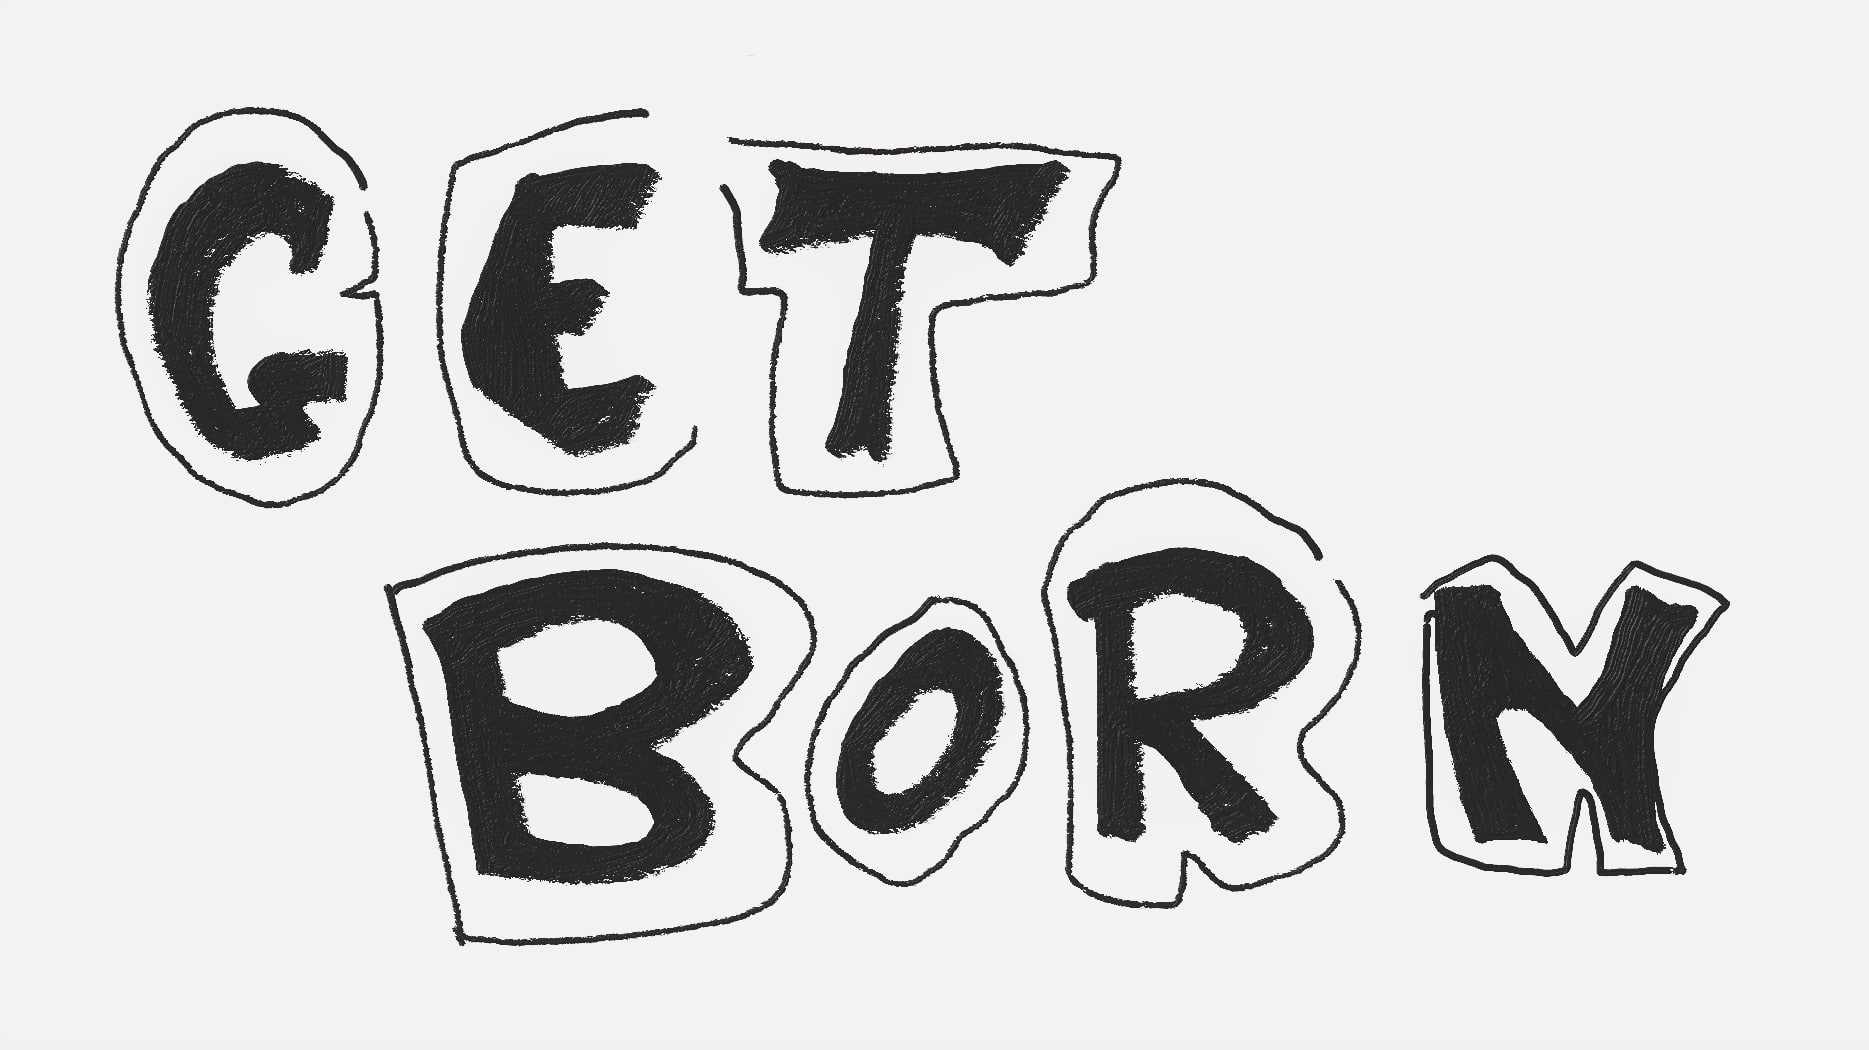 GET
BORN